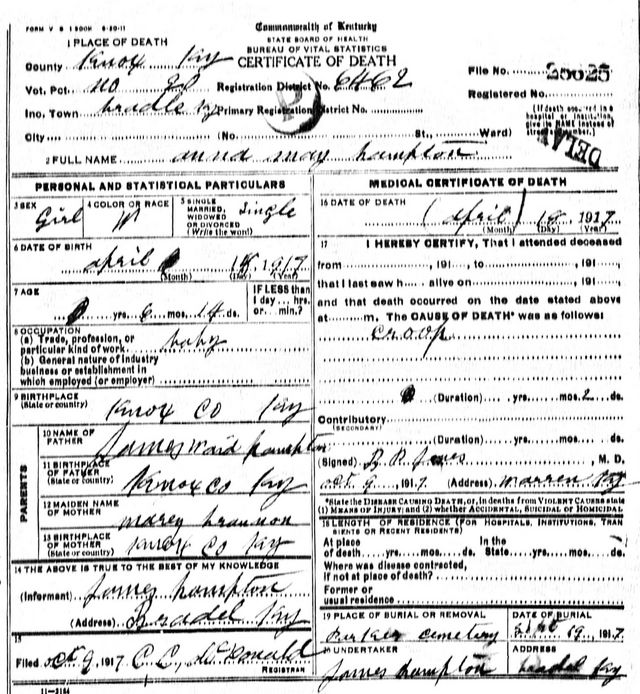 FORM V S 1 500M 6-20-11
Commonwealth of Kentucky
STATE BOARD OF HEALTH
BUREAU OF VITAL STATISTICS
CERTIFICATE OF DEATH
1 PLACE OF DEATH
County Knox Ky
Vot. Pct. no 20 Registration District No. 6462
File No. 25625
Registered No.
Ino. Town Primary Registration District No.
(If death occurred in a hospital or institution, give its NAME instead of street number.)
City (No. St., Ward)
DELAY
2 FULL NAME anna may hampton
PERSONAL AND STATISTICAL PARTICULARS
3 SEX Girl
4 COLOR OR RACE W
5 SINGLE MARRIED, WIDOWED OR DIVORCED (Write the word) Single
6 DATE OF BIRTH
april 1917
(Month) (Day) (Year)
7 AGE
yrs. 6 mos. 14 ds.
IF LESS than 1 day... hrs. or... min.?
8 OCCUPATION
(a) Trade, profession, or particular kind of work. baby
(b) General nature of industry business or establishment in which employed (or employer)
9 BIRTHPLACE (State or country) Knox Co Ky
PARENTS
10 NAME OF FATHER James Hampton
11 BIRTHPLACE OF FATHER (State or country) Knox Co Ky
12 MAIDEN NAME OF MOTHER marey
13 BIRTHPLACE OF MOTHER (State or country) Knox Co Ky
14 THE ABOVE IS TRUE TO THE BEST OF MY KNOWLEDGE
(Informant) James hampton
(Address) Bradel Ky
15
Filed oct 9, 1917 C. C. McDonald
REGISTRAR
11-3184
MEDICAL CERTIFICATE OF DEATH
16 DATE OF DEATH
(april) 1917
(Month) (Day) (Year)
17 I HEREBY CERTIFY, That I attended deceased
from , 191 , to , 191
that I last saw h alive on , 191
and that death occurred on the date stated above
at m. The CAUSE OF DEATH* was as follows:
croop
(Duration) yrs. mos. 2 ds.
Contributory
(SECONDARY)
(Duration) yrs. mos. ds.
(Signed) Jones, M. D.
oct 9, 1917 (Address) Warren Ky
*State the DISEASE CAUSING DEATH, or, in deaths from VIOLENT CAUSES state (1) MEANS OF INJURY; and (2) whether ACCIDENTAL, SUICIDAL or HOMICIDAL
18 LENGTH OF RESIDENCE (FOR HOSPITALS, INSTITUTIONS, TRANSIENTS OR RECENT RESIDENTS)
At place of death yrs. mos. ds. In the State yrs. mos. ds.
Where was disease contracted, if not at place of death?
Former or usual residence
19 PLACE OF BURIAL OR REMOVAL cemetery
DATE OF BURIAL 19, 1917
20 UNDERTAKER James hampton
ADDRESS Ky